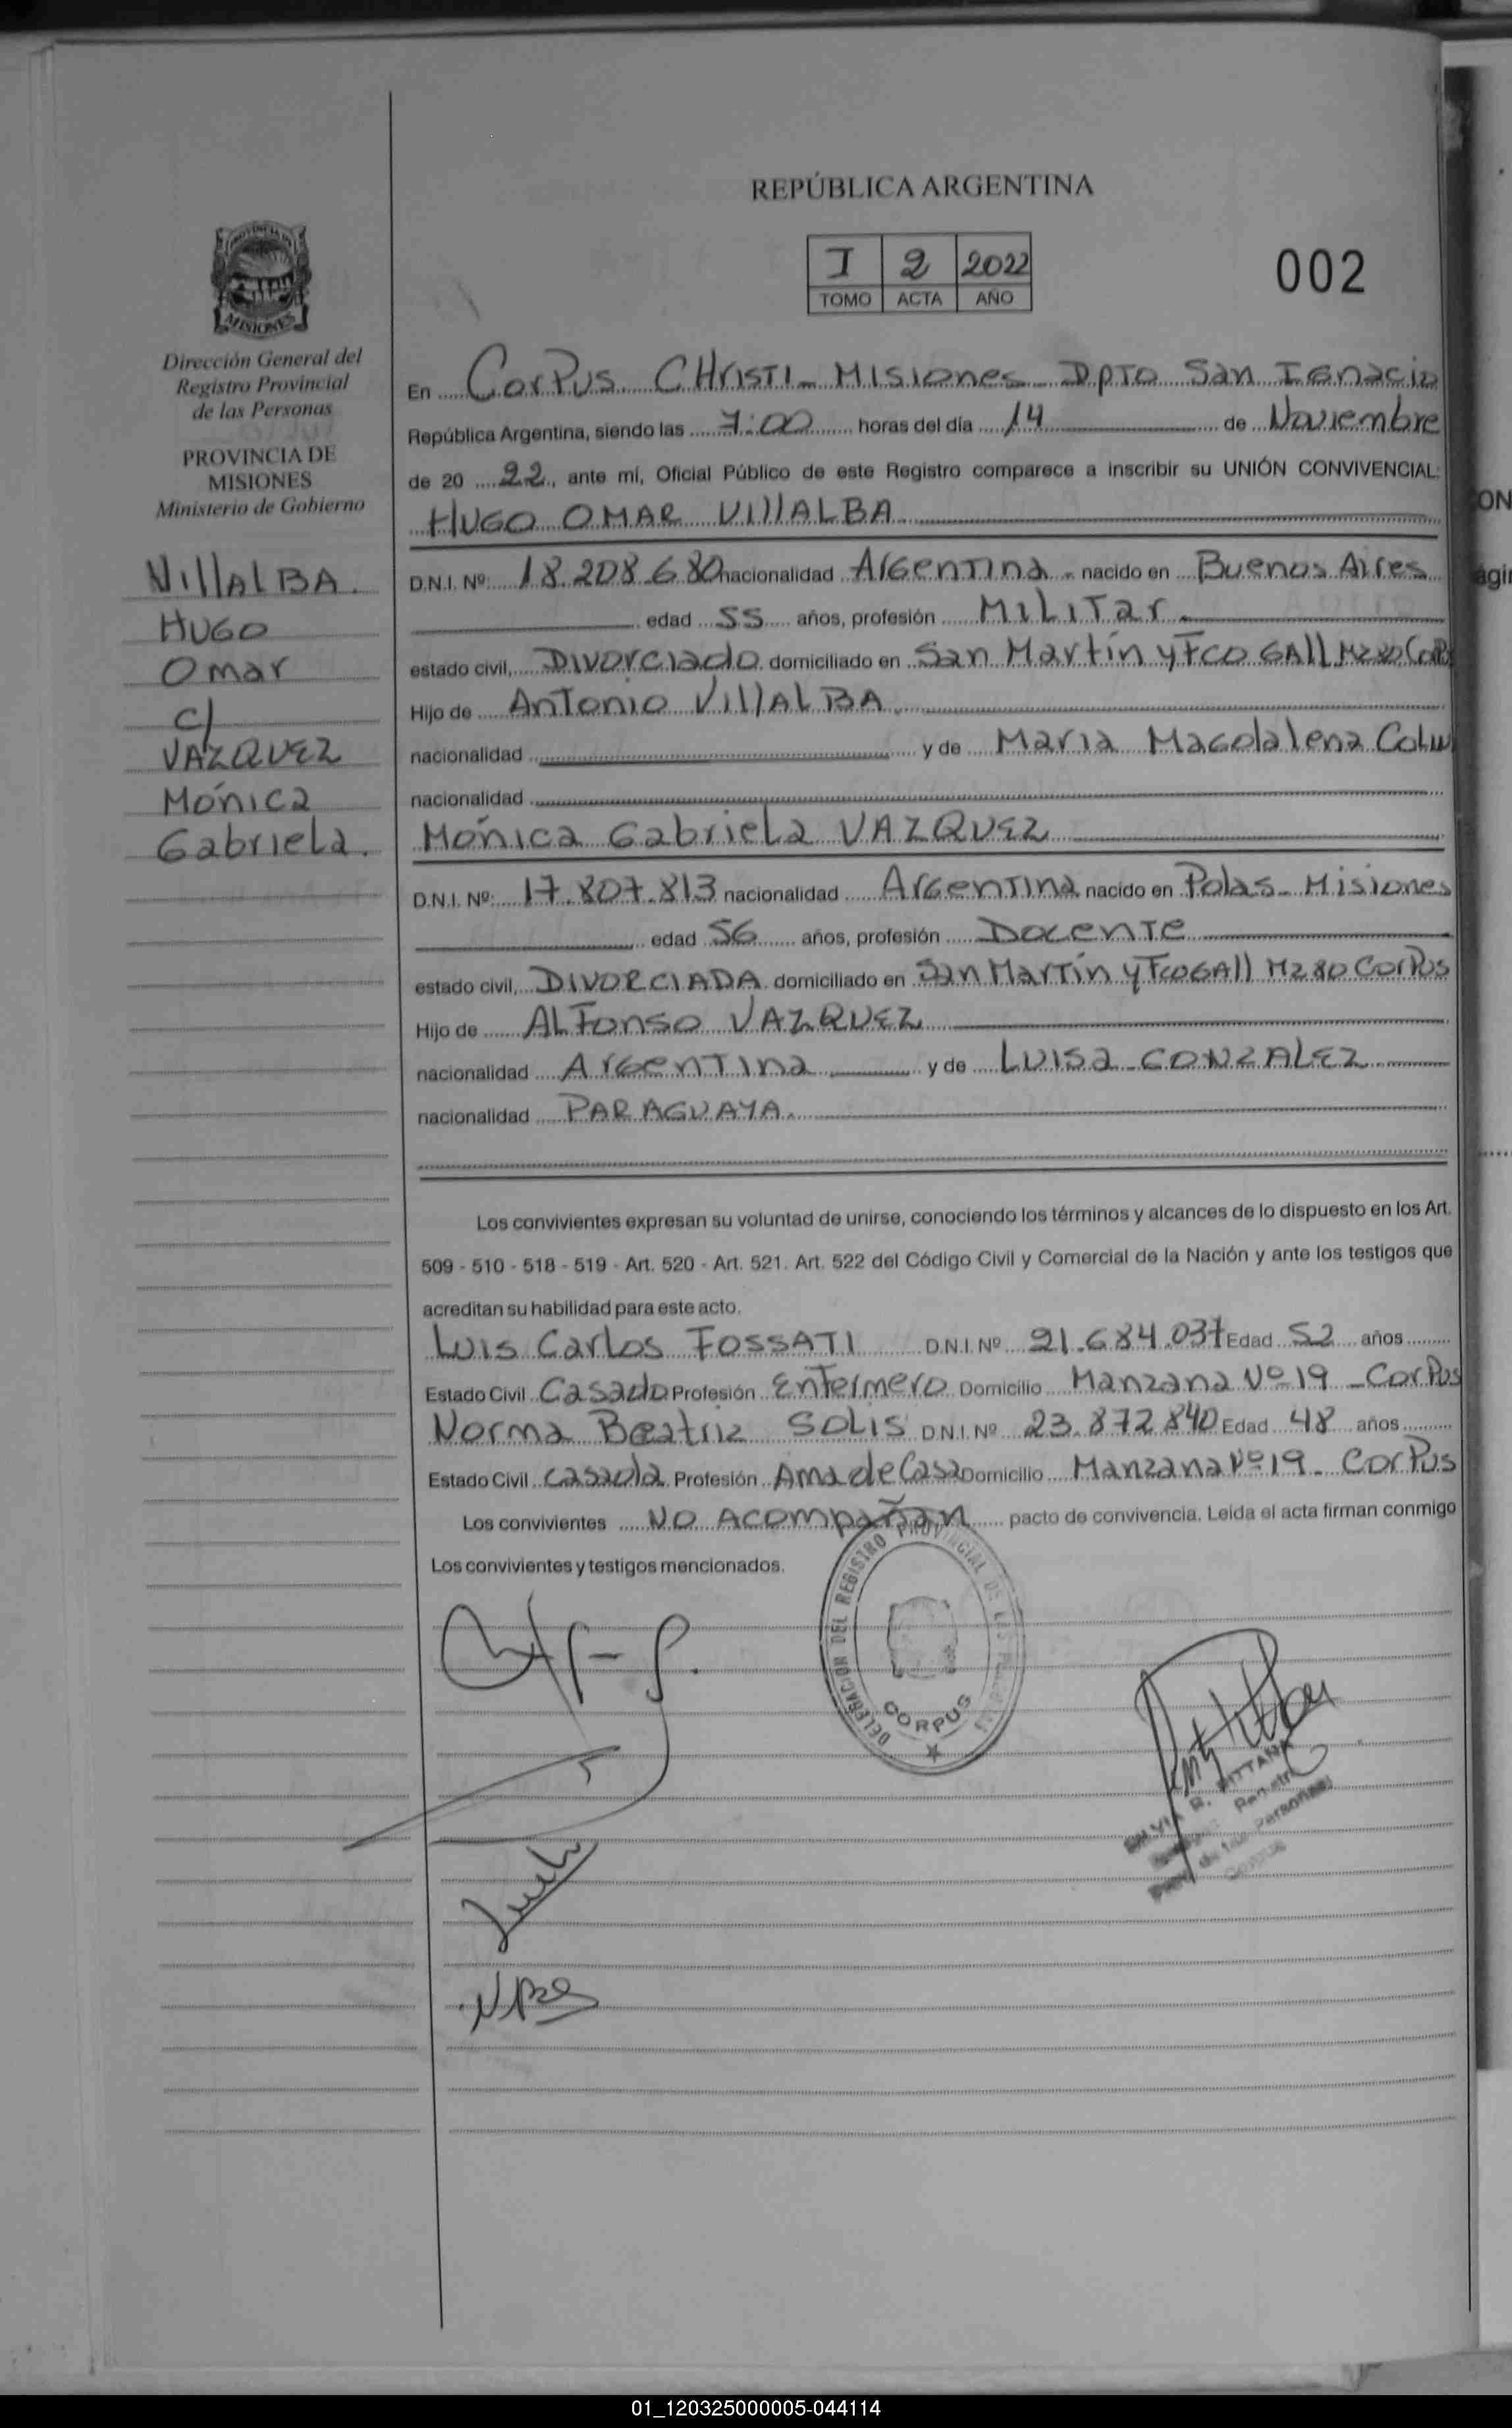 REPÚBLICA ARGENTINA
I 2 2022
TOMO ACTA AÑO
002
PROVINCIA DE
MISIONES
Dirección General del
Registro Provincial
de las Personas
PROVINCIA DE
MISIONES
Ministerio de Gobierno
VillALBA.
HUGO
Omar
c/
VAZQUEZ
Mónica
Gabriela.
En CorPus CHrISTI - MIsiones - DpTo San IGnacio
República Argentina, siendo las 7:00 horas del día 14 de Noviembre
de 20 22, ante mí, Oficial Público de este Registro comparece a inscribir su UNIÓN CONVIVENCIAL:
HUGO OMAR VIllALBA
D.N.I. Nº: 18.208.680 nacionalidad ArGenTIna - nacido en Buenos Aires
edad 55 años, profesión MILITar
estado civil, DIvorciado domiciliado en San Martín y Fco GAll Mz 80
Hijo de AnTonio VillALBA
nacionalidad y de María Magdalena
nacionalidad
Mónica Gabriela VAZQUEZ
D.N.I. Nº: 17.807.813 nacionalidad ArGenTIna nacido en Polas - Misiones
edad 56 años, profesión DocenTe
estado civil, DIVORCIADA domiciliado en San Martín y Fco GAll Mz 80 CorPus
Hijo de ALFonso VAZQUEZ
nacionalidad ArGenTIna y de LUISa GONZALEZ
nacionalidad PARAGUAYA.
Los convivientes expresan su voluntad de unirse, conociendo los términos y alcances de lo dispuesto en los Art.
509 - 510 - 518 - 519 - Art. 520 - Art. 521. Art. 522 del Código Civil y Comercial de la Nación y ante los testigos que
acreditan su habilidad para este acto.
Luis Carlos FOSSATI D.N.I. Nº 21.684.037 Edad 52 años
Estado Civil Casado Profesión Enfermero Domicilio Manzana Nº 19 - CorPus
Norma Beatriz SOLIS D.N.I. Nº 23.872.840 Edad 48 años
Estado Civil Casada Profesión Ama de Casa Domicilio Manzana Nº 19 - CorPus
Los convivientes NO Acompañan pacto de convivencia. Leída el acta firman conmigo
Los convivientes y testigos mencionados.
DELEGACIÓN DEL REGISTRO PROVINCIAL DE LAS PERSONAS
CORPUS
SILVIA R. PITTANA
de las Personas
Corpus
ON
ági
01_120325000005-044114